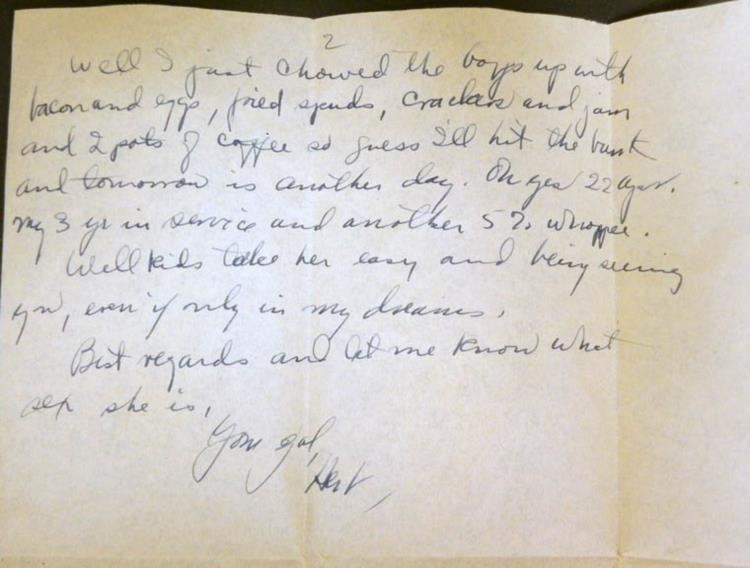 2
Well I just chowed the boys up with
bacon and eggs, fried spuds, crackers and jam
and 2 pots of coffee so guess I'll hit the bunk
and tomorrow is another day. Oh yes 22 apr.
my 3 yr in service and another 5% whoppee.
Well kids take her easy and being seeing
you, even if only in my dreams.
Best regards and let me know what
sex she is,
Your gal,